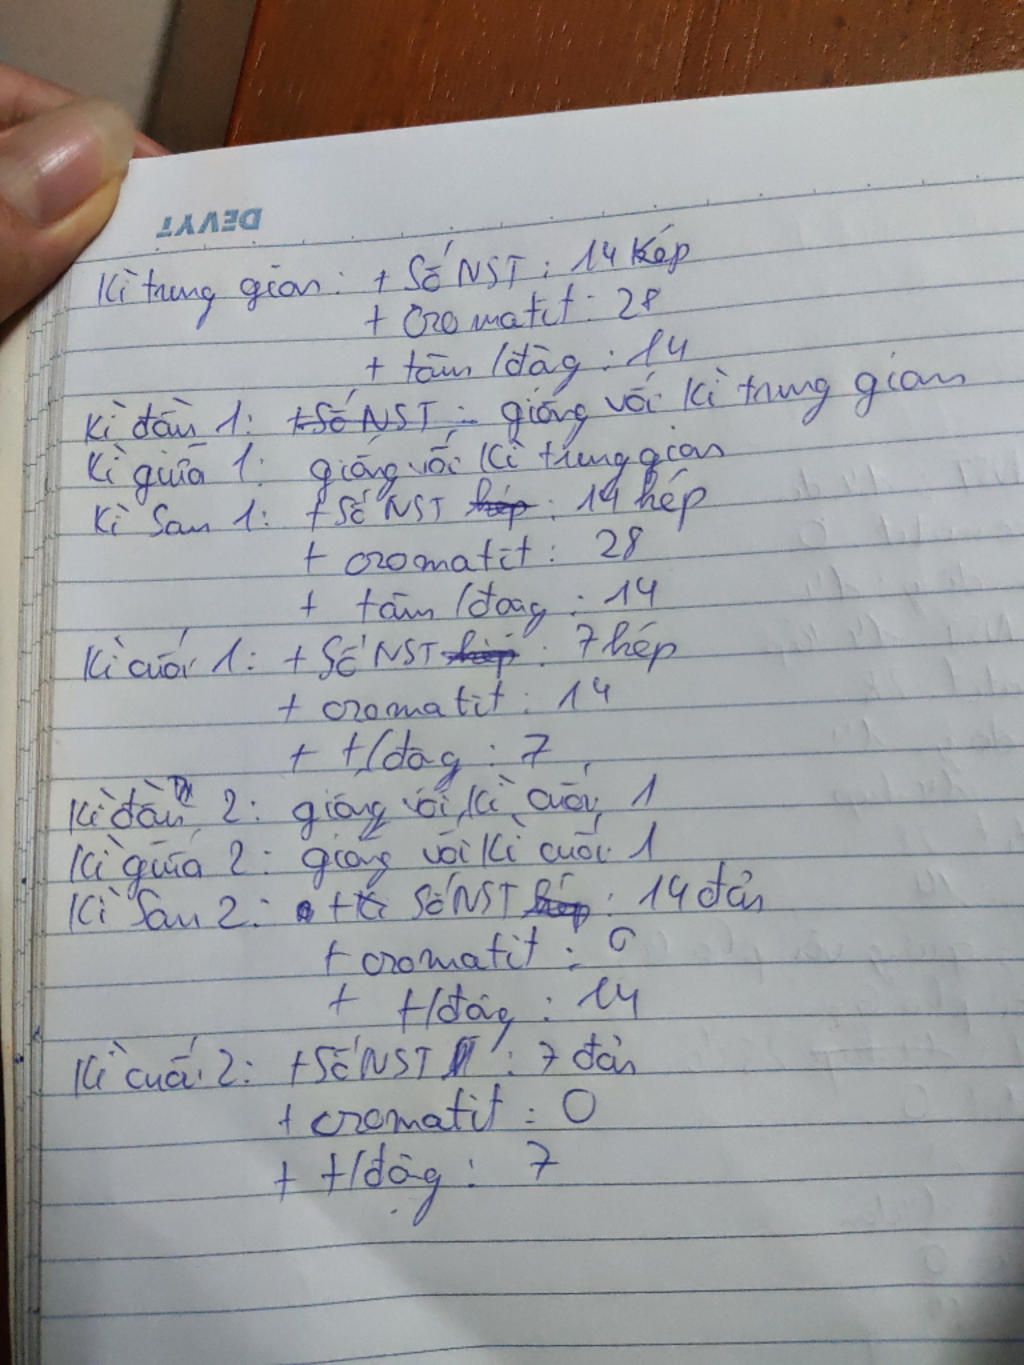 DEVYT
Kì trung gian: + Số NST: 14 kép
+ Cromatit: 28
+ tâm /độg: 14
Kì đầu 1: +Số NST: giống với Kì trung gian
Kì giữa 1: giống với Kì trung gian
Kì sau 1: + Số NST kép: 14 kép
+ cromatit: 28
+ tâm /độg: 14
Kì cuối 1: + Số NST kép: 7 kép
+ cromatit: 14
+ t/độg: 7
Kì đầu 2: giống với Kì cuối 1
Kì giữa 2: giống với Kì cuối 1
Kì sau 2: + Số NST kép: 14 đơn
+ cromatit: 0
+ t/độg: 14
Kì cuối 2: + Số NST: 7 đơn
+ cromatit: 0
+ t/độg: 7